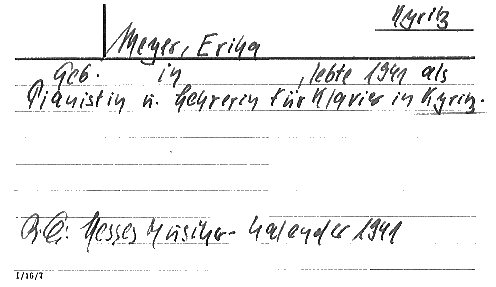 Kyritz
Meyer, Erika
Geb. in , lebte 1941 als
Pianistin u. Lehrerin für Klavier in Kyritz.
Hesses Musiker-Kalender 1941
I/16/7